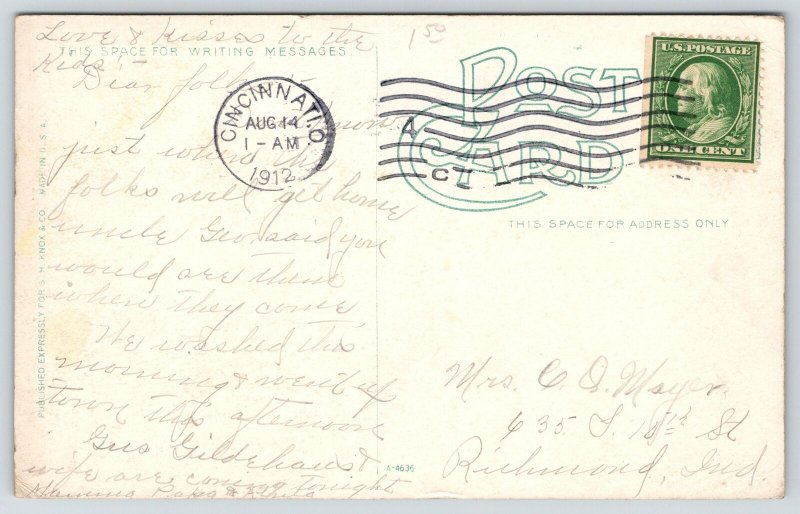 Love & Kisses to the
Kids
THIS SPACE FOR WRITING MESSAGES
Dear folks
just when the
folks will get home
uncle Geo. said you
would are there
when they come
We washed this
morning & went up
town this afternoon
Gus Gildehaus &
wife are coming tonight
Mamma Papa &
PUBLISHED EXPRESSLY FOR S. H. KNOX & CO. MADE IN U.S.A.
CINCINNATI, O.
AUG 14
1 - AM
1912
1 50
POST
CARD
4
C
U.S. POSTAGE
ONE CENT
THIS SPACE FOR ADDRESS ONLY
Mrs. C. O. Mayer
635 S. 10th St
Richmond, Ind.
A-4636